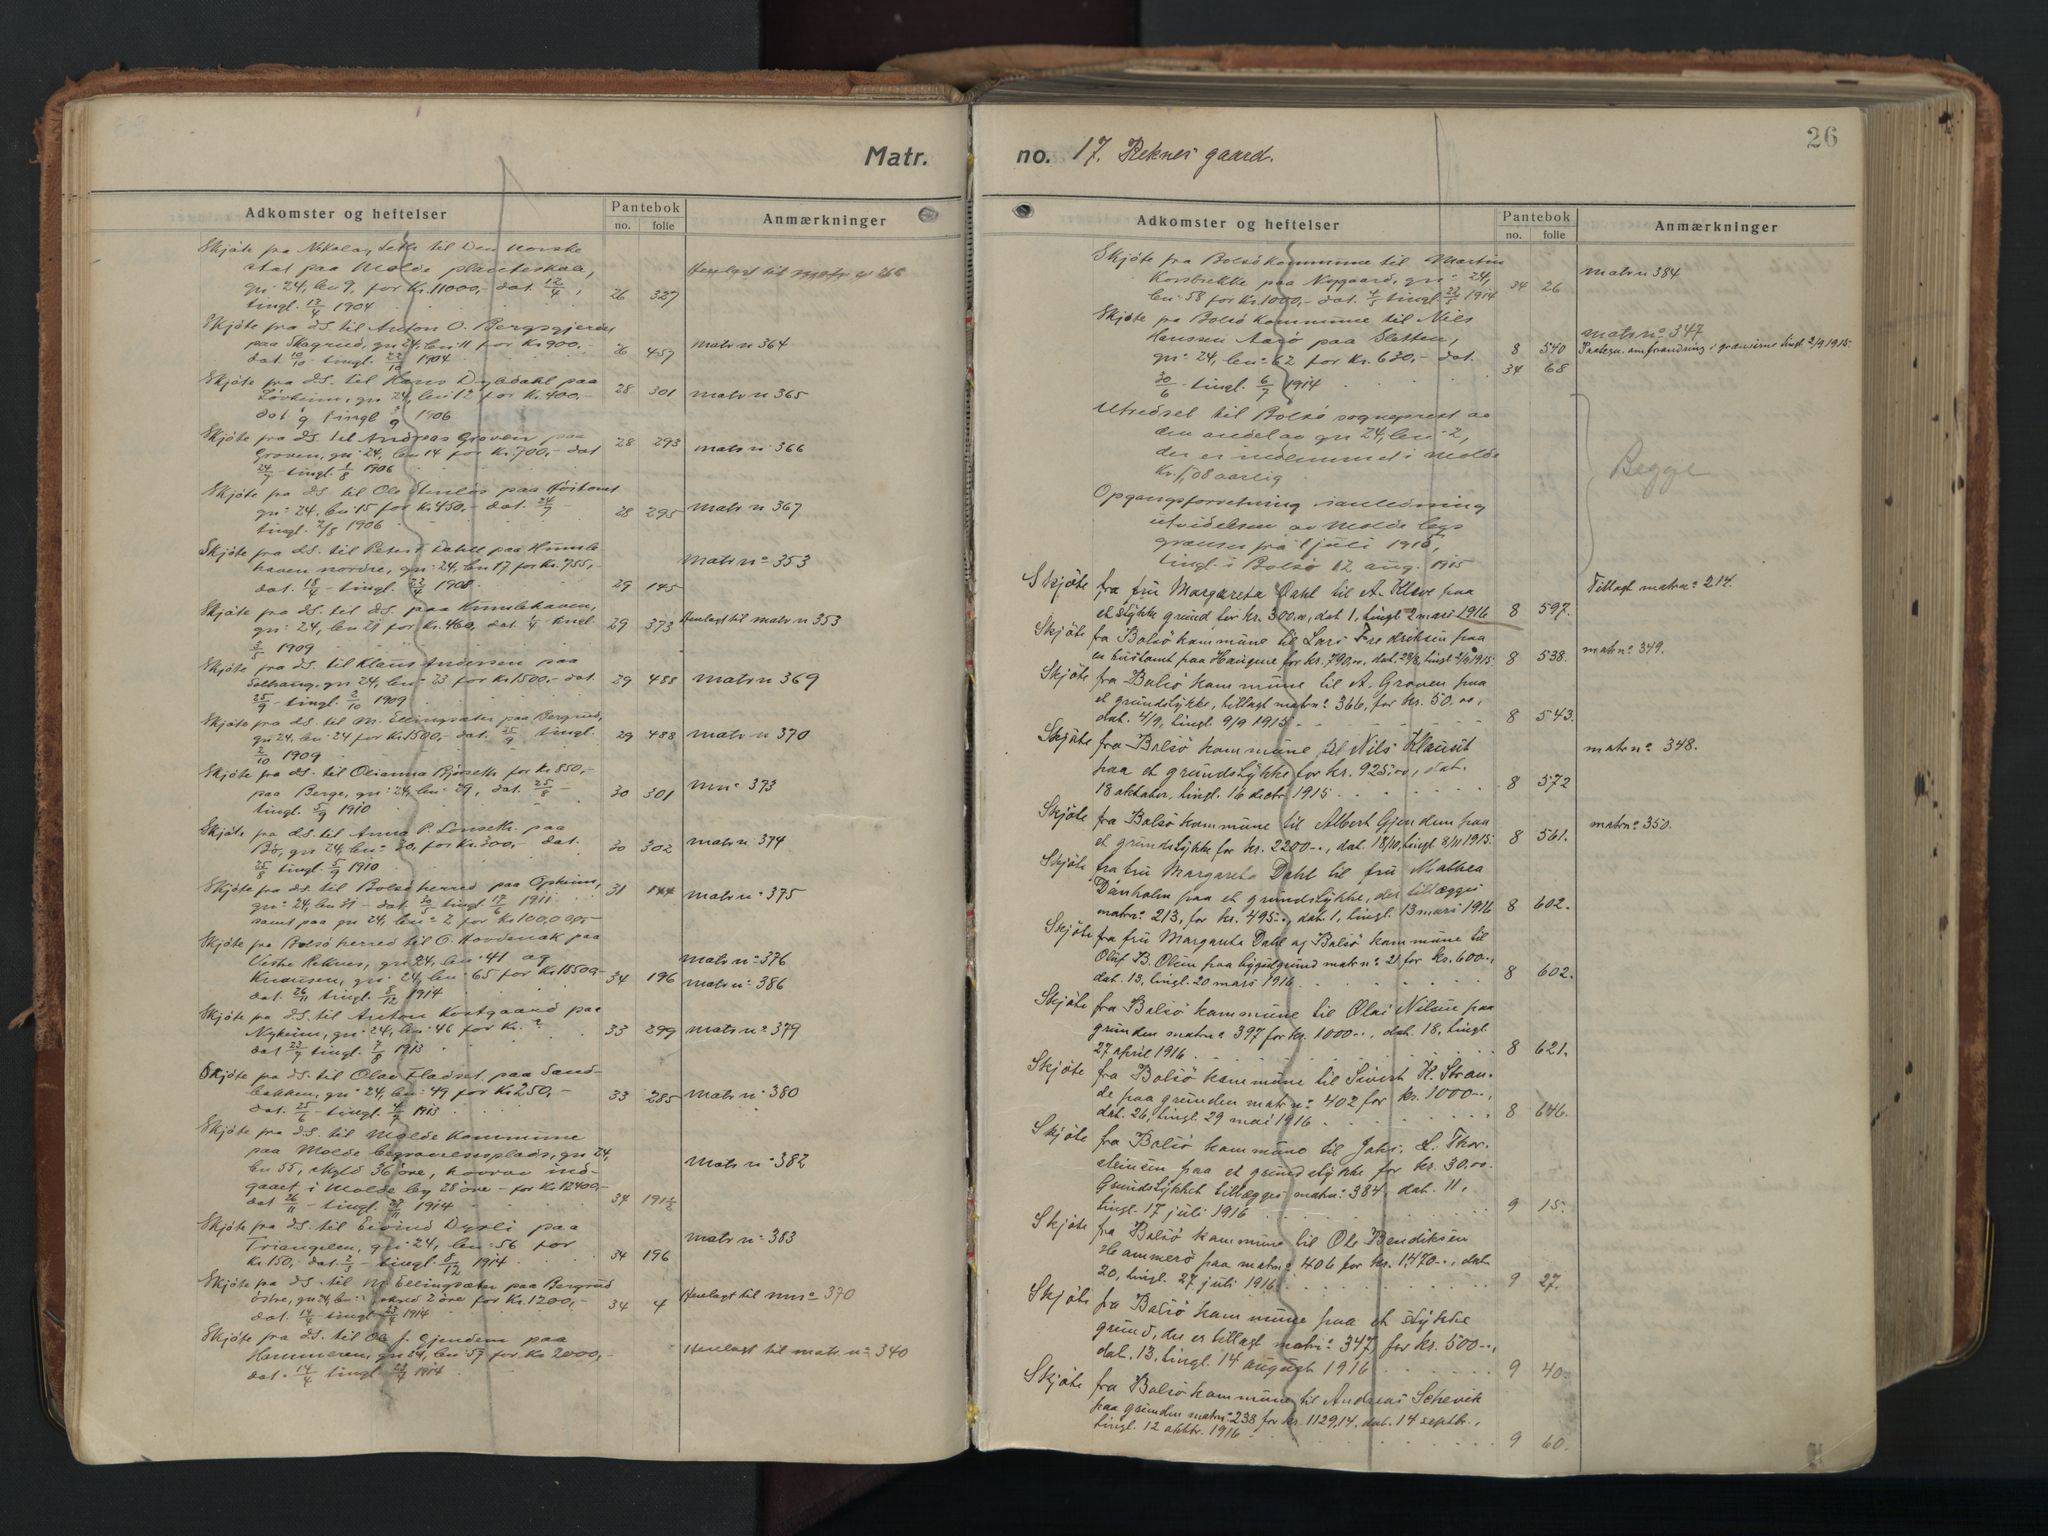 Matr.
Adkomster og heftelser
Pantebok
no. folie
Anmærkninger
Skjöte fra Nikolay Leth til Den norske
stat paa Molde planteskole,
gn. 24, bn 9, for Kr. 11000,- dat. 12/4,
tingl. 13/4 1904
26 327
Henlagt til matr n
Skjöte fra d.S. til Anton O. Bergsgjerdet
paa Skogrud, gn 24, bn 11 for Kr 900,-
dat 10/10 tingl. 22/10 1904
26 457
Matr n 364
Skjöte fra d.S. til Hans Dybdahl paa
gn 24, bn 12 for Kr. 400,-
dat tingl 3/9 1906
28 301
matr n 365
Skjöte fra d.S. til Andreas Groven paa
Groven, gn. 24, bn 14 for Kr. 700,- dat
24/7 - tingl. 1/8 1906
28 293
matr n 366
Skjöte fra d.S. til Ole Stenlös paa
gn. 24, bn 15 for Kr. 450,- dat. 24/7 -
tingl. 2/8 1906
28 295
Matr n 367
Skjöte fra d.S. til Peter Dahl paa Humle
haven nordre, gn. 24, bn 17 for Kr. 755,-
dat. 15/4 - tingl. 23/4 1908
29 145
Matr no 353
Skjöte fra d.S. til d.S. paa Humlehaven,
gn. 24, bn 21 for Kr. 460, dat. 1/4 tingl
3/5 1909
29 373
Henlagt til matr n 353
Skjöte fra d.S. til Klaus Andersen paa
Solhaug, gn 24, bn. 23 for Kr 1500,- dat
25/9 - tingl. 2/10 1909
29 488
Matr n 369
Skjöte fra d.S. til M. Ellingsæter paa Bergrud,
gn 24, bn 24 for Kr. 1500,- dat. 25/9 tingl.
2/10 1909
29 488
Matr n 370
Skjöte fra d.S. til Olianna Bjerseth for Kr 850,-
paa Berge, gn. 24, bn. 29, dat. 25/8 -
tingl. 5/9 1910
30 301
mno 373
Skjöte fra d.S. til Anna P. Lonseth. paa
Bö, gn 24, bn. 30, for Kr. 300,- dat.
25/8 tingl. 5/9 1910
30 302
matr n 374
Skjöte fra d.S. til Bolsö herred paa Opheim,
gn. 24, bn 31 - dat. 30/5 tingl. 17/6 1911
samt paa gn 24, bn. 2 for Kr 100,000,-
31 144
matr no 375
Skjöte fra Bolsö herred til O. Hovdenak paa
Vestre Reknes, gn 24, bn. 41 og
Knausen, gn. 24, bn. 65 for Kr 15500,-
dat. 26/11 tingl. 8/12 1914
34 196
matr no 376
matr no 386
Skjöte fra d.S. til Anton Kortgaard paa
Nyheim, gn. 24, bn. 46 for Kr. ?
dat 23/7 tingl. 7/8 1913
33 299
matr no 379
Skjöte fra d.S. til Olav Fladset paa Sand-
bakken, gn. 24, bn. 49 for Kr 250,-
dat. 25/6 - tingl. 4/7 1913
33 285
Matr no 380
Skjöte fra d.S. til Molde Kommune
paa Molde begravelsesplads, gn 24,
bn 55, skyld 36 öre, hvorav ind-
gaaet i Molde by 28 öre - for Kr 12400,-
dat 26/11 - tingl. 27/11 1914
34 191½
Matr no 382
Skjöte fra d.S. til Eivind Dyrli paa
Triangelen, gn. 24, bn. 56 for
Kr. 150,- dat. 2/3 - tingl. 8/12 1914
34 196
matr no 383
Skjöte fra d.S. til M. Ellingsæter paa Bergrud
östre, gn 24, bn. skyld 2 öre for Kr. 1200,-
dat. 14/4 tingl. 23/4 1914
34 4
Henlagt til mno 370
Skjöte fra d.S. til Ole J. Gjendem paa
Hammeren, gn 24, bn 57 for Kr 2000,-
dat. 14/4 tingl. 23/4 1914
Henlagt til matr no 340
no. 17. Reknes gaard.
26
Adkomster og heftelser
Pantebok
no. folie
Anmærkninger
Skjöte fra Bolsö Kommune til Martin
Korsbrekke paa Nygaard, gn. 24,
bn. 58 for Kr. 1000,- dat. 4/5 tingl. 22/5 1914
34 26
matr n 384
Skjöte fra Bolsö Kommune til Nils
Hanssen Aarö paa Sletten,
gn. 24, bn. 62 for Kr. 630,- dat.
30/6 - tingl. 6/7 1914
8 540
34 68
matr no 347
grænserne tingl 2/9 1915.
Utredsel til Bolsö sogneprest av
den andel av gn 24, bn. 2,
der er indlemmet i Molde
Kr. 1,08 aarlig
Opgangsforretning i anledning
utvidelsen av Molde bys
grænser fra 1 juli 1915,
tingl. i Bolsö 12 aug. 1915
Begge
Skjöte fra fru Margareta Dahl til A. Kleve paa
et stykke grund for kr. 300.00, dat 1, tingl 2 mars 1916
8 597.
Tillagt matrno 214.
Skjöte fra Bolsö kommune til Lars Fredriksen paa
en hustomt paa Haugene for kr. 790,00, dat. 28/8, tingl 2/9 1915.
8 538.
matrno 349.
Skjöte fra Bolsö kommune til A. Groven paa
et grundstykke, tillagt matrno 366, for kr. 50.00,
dat. 4/9, tingl. 9/9 1915
8 543.
Skjöte fra Bolsö kommune til Nils Klauset
paa et grundstykke for kr. 925,00, dat.
18 oktober, tingl. 16 decbr 1915
8 572
matrno 348.
Skjöte fra Bolsö kommune til Albert Gjendem paa
et grundstykke for kr. 2200-., dat 18/10, tingl 8/11 1915.
8 561.
matrno 350.
Skjöte fra fru Margareta Dahl til fru Mathea
Danholm paa et grundstykke, der tillægges
matrno 213, for kr. 495-., dat. 1, tingl. 13 mars 1916
8 602.
Skjöte fra fru Margareta Dahl og Bolsö kommune til
Oluf B. Olsen paa bygselgrund matrno 21 for kr. 600-.,
dat. 13, tingl. 20 mars 1916
8 602.
Skjöte fra Bolsö kommune til Olai Nilsen paa
grunden matrno 397 for kr. 1000-., dat. 18, tingl.
27 april 1916
8 621.
Skjöte fra Bolsö kommune til Sivert H. Stran-
de paa grunden matrno 402 for kr. 1000-.,
dat. 26, tingl. 29 mai 1916
8 646.
Skjöte fra Bolsö kommune til Johs. L. Thor-
steinsen paa et grundstykke for kr. 30.00.
Grundstykket tillægges matrno 384, dat. 11,
tingl. 17 juli 1916
9 15.
Skjöte fra Bolsö kommune til Ole Bendiksen
Hammerö paa matrno 406 for kr. 1,470-., dat.
20, tingl. 27 juli 1916
9 27.
Skjöte fra Bolsö kommune paa et stykke
grund, der er tillagt matrno 347, for kr. 500-.,
dat. 13, tingl. 14 august 1916
9 40.
Skjöte fra Bolsö kommune til Andreas Schevik
paa grunden matrno 238 for kr. 1129,14, dat. 14 septbr.,
tingl. 12 oktbr. 1916
9 60.